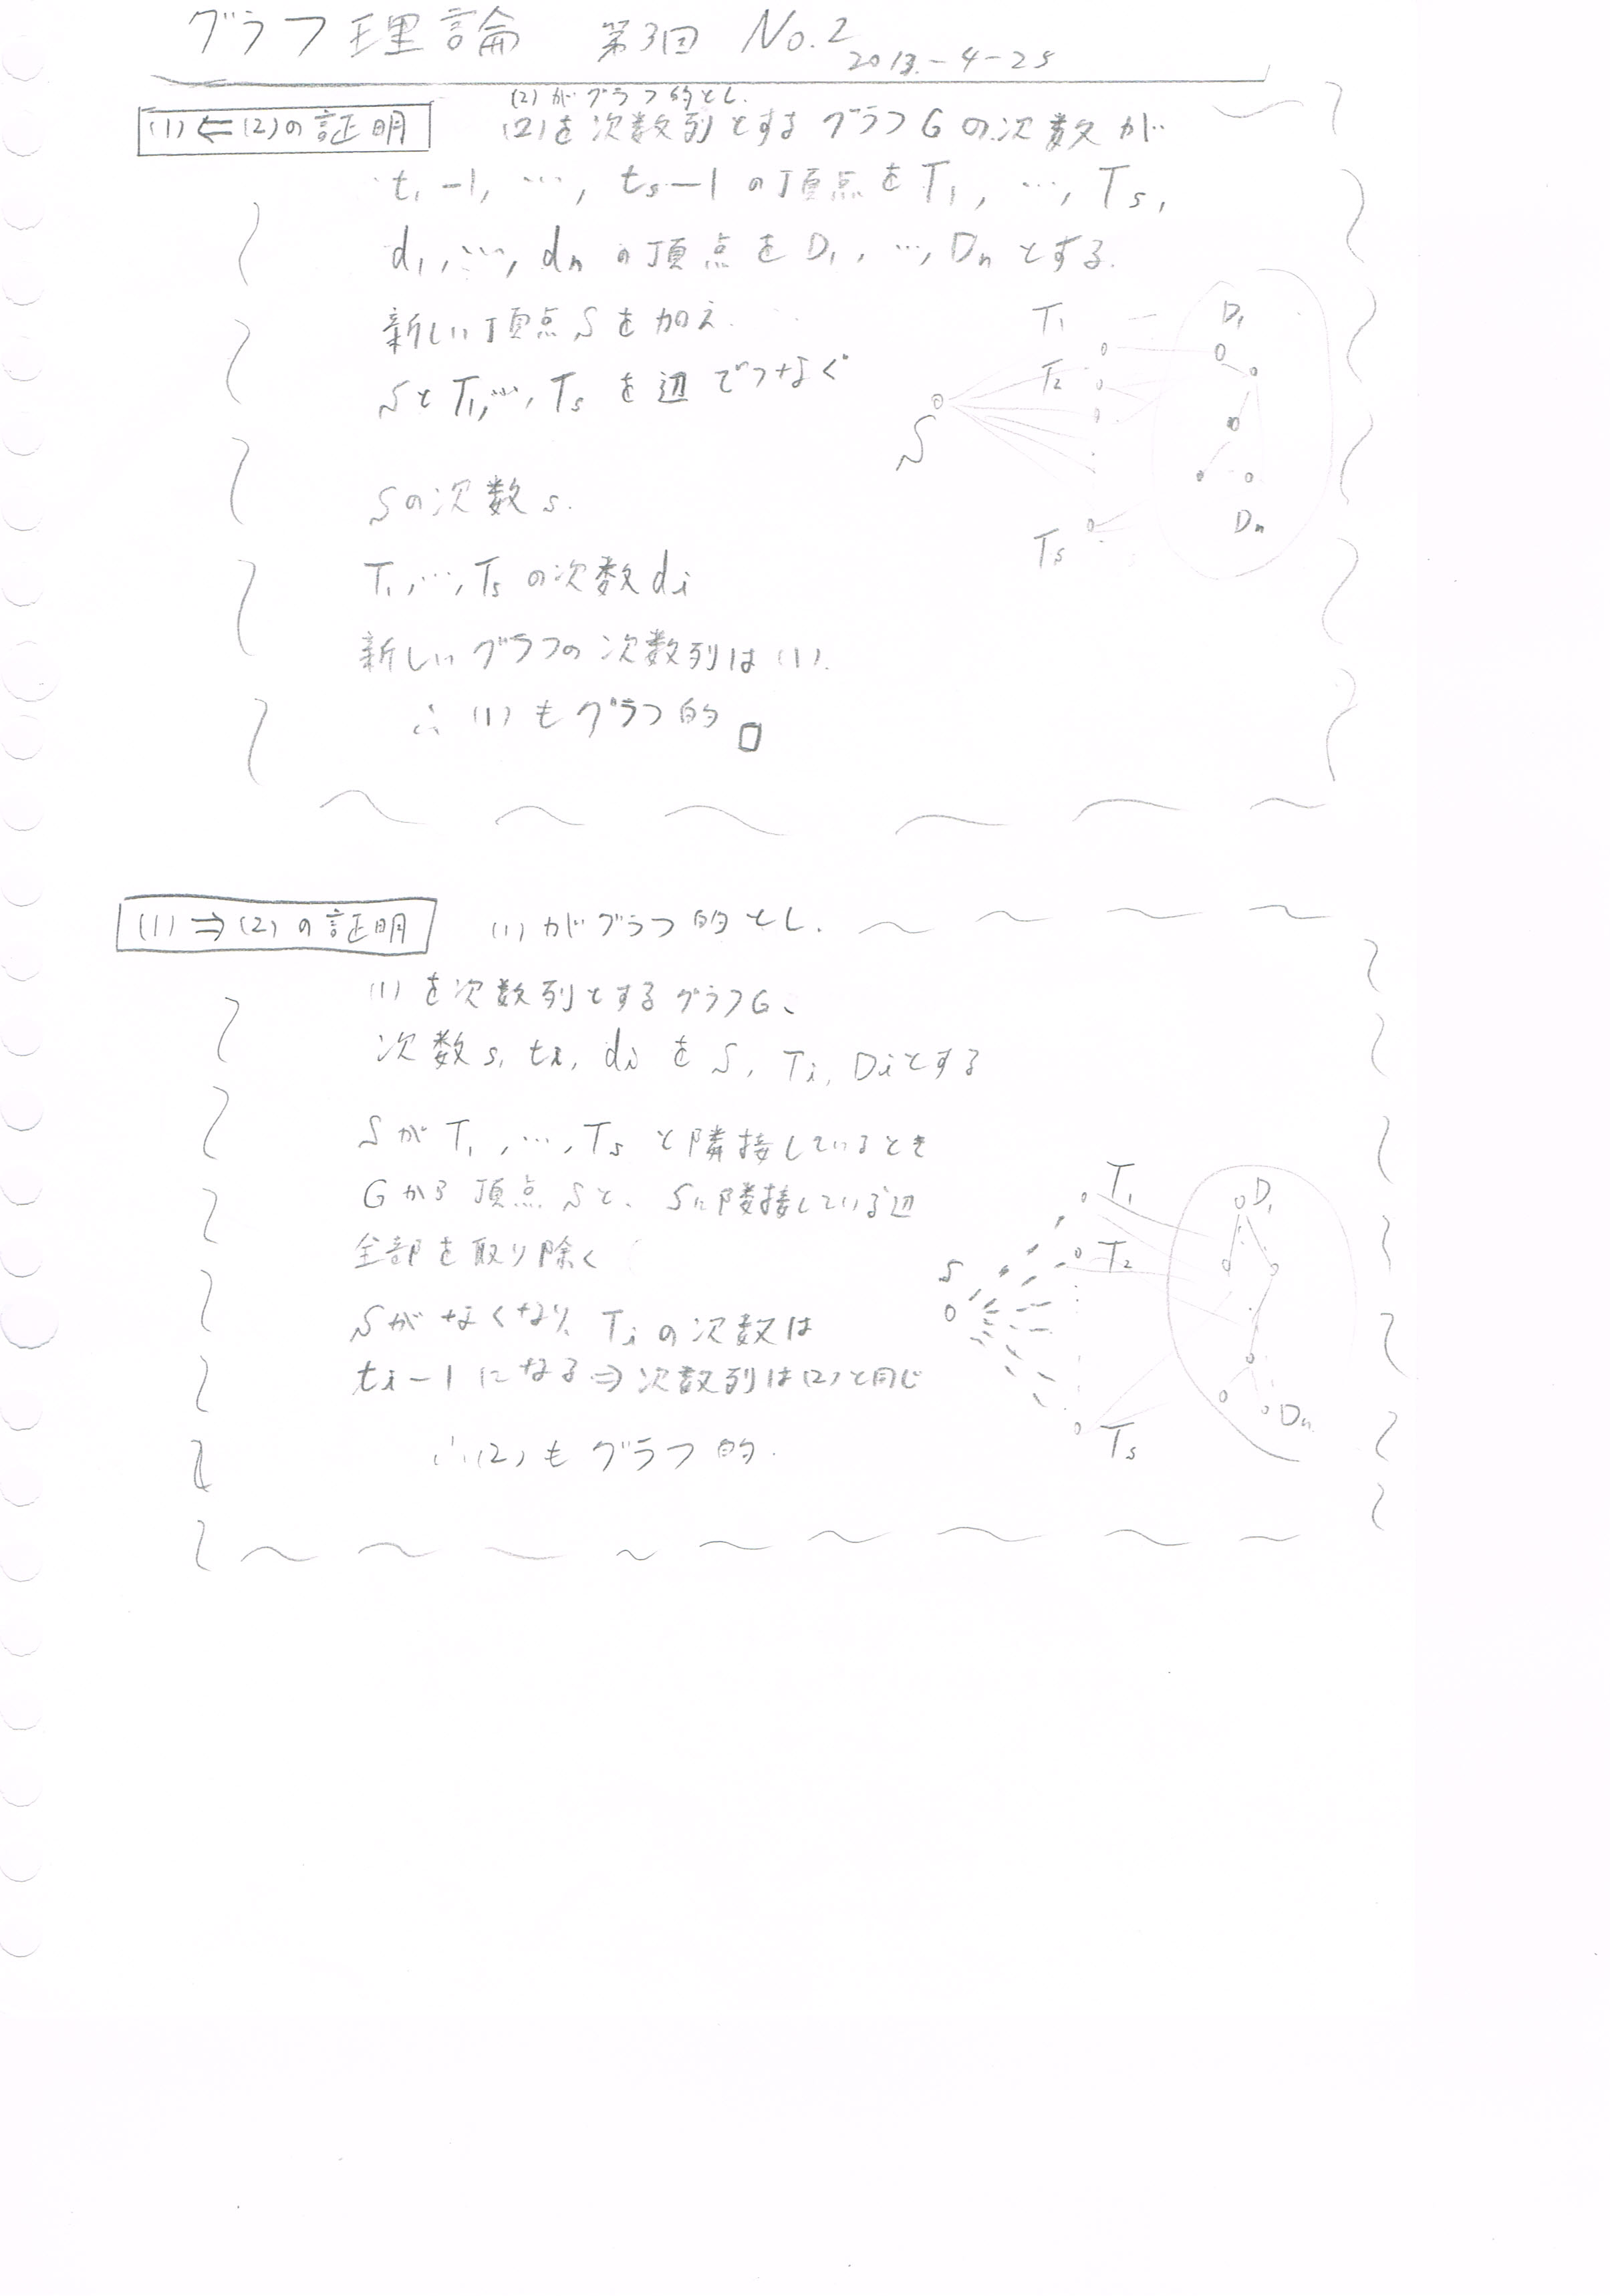 グラフ理論 第3回 No.2
2013.-4-25
(1)⇐(2)の証明
(2)がグラフ的とし.
(2)を次数列とするグラフGの次数が
t₁-1, …, ts-1の頂点をT₁, …, Ts,
d₁, …, dnの頂点をD₁, …, Dnとする.
新しい頂点Sを加え
SとT₁, …, Tsを辺でつなぐ
Sの次数s.
T₁, …, Tsの次数di
新しいグラフの次数列は(1).
∴ (1)もグラフ的□
S
T₁
T₂
Ts
D₁
Dn
(1)⇒(2)の証明
(1)がグラフ的とし.
(1)を次数列とするグラフG、
次数s, ti, diをS, Ti, Diとする
SがT₁, …, Tsと隣接しているとき
Gから頂点Sと、Sに隣接している辺
全部を取り除く
Sがなくなり、Tiの次数は
ti-1になる⇒次数列は(2)と同じ
∴(2)もグラフ的.
S
T₁
T₂
Ts
D₁
Dn